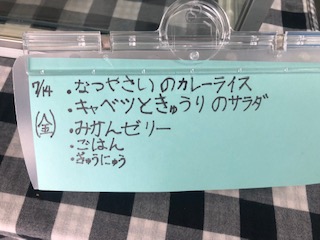 7/14 ・なつやさいのカレーライス
・キャベツときゅうりのサラダ
(金)
・みかんゼリー
・ごはん
・ぎゅうにゅう